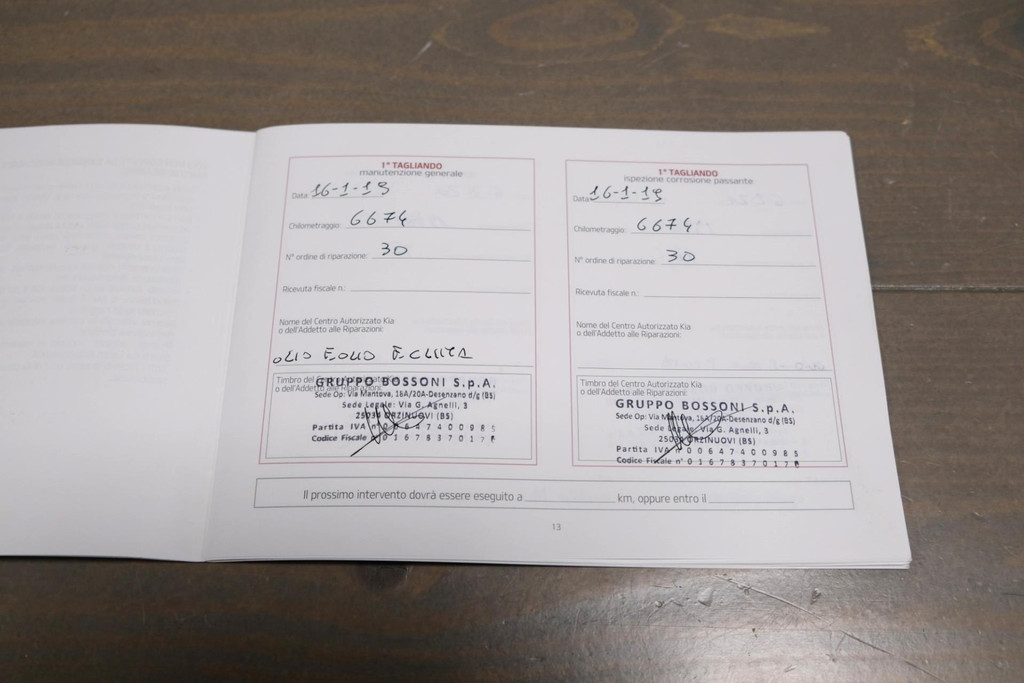 1° TAGLIANDO
manutenzione generale
Data 16-1-19
Chilometraggio: 6674
N° ordine di riparazione: 30
Ricevuta fiscale n.:
Nome del Centro Autorizzato Kia
o dell'Addetto alle Riparazioni:
OLIO
Timbro del Centro Autorizzato Kia
o dell'Addetto alle Riparazioni:
GRUPPO BOSSONI S.p.A.
Sede Op: Via Mantova, 16A/20A-Desenzano d/g (BS)
Sede Legale: Via G. Agnelli, 3
25034 ORZINUOVI (BS)
Partita IVA n° 0 0 6 4 7 4 0 0 9 8 5
Codice Fiscale n° 0 1 6 7 8 3 7 0 1 7 8
1° TAGLIANDO
ispezione corrosione passante
Data: 16-1-19
Chilometraggio: 6674
N° ordine di riparazione: 30
Ricevuta fiscale n.:
Nome del Centro Autorizzato Kia
o dell'Addetto alle Riparazioni:
Timbro del Centro Autorizzato Kia
o dell'Addetto alle Riparazioni:
GRUPPO BOSSONI S.p.A.
Sede Op: Via Mantova, 16A/20A-Desenzano d/g (BS)
Sede Legale: Via G. Agnelli, 3
25034 ORZINUOVI (BS)
Partita IVA n° 0 0 6 4 7 4 0 0 9 8 5
Codice Fiscale n° 0 1 6 7 8 3 7 0 1 7 8
Il prossimo intervento dovrà essere eseguito a km, oppure entro il
13